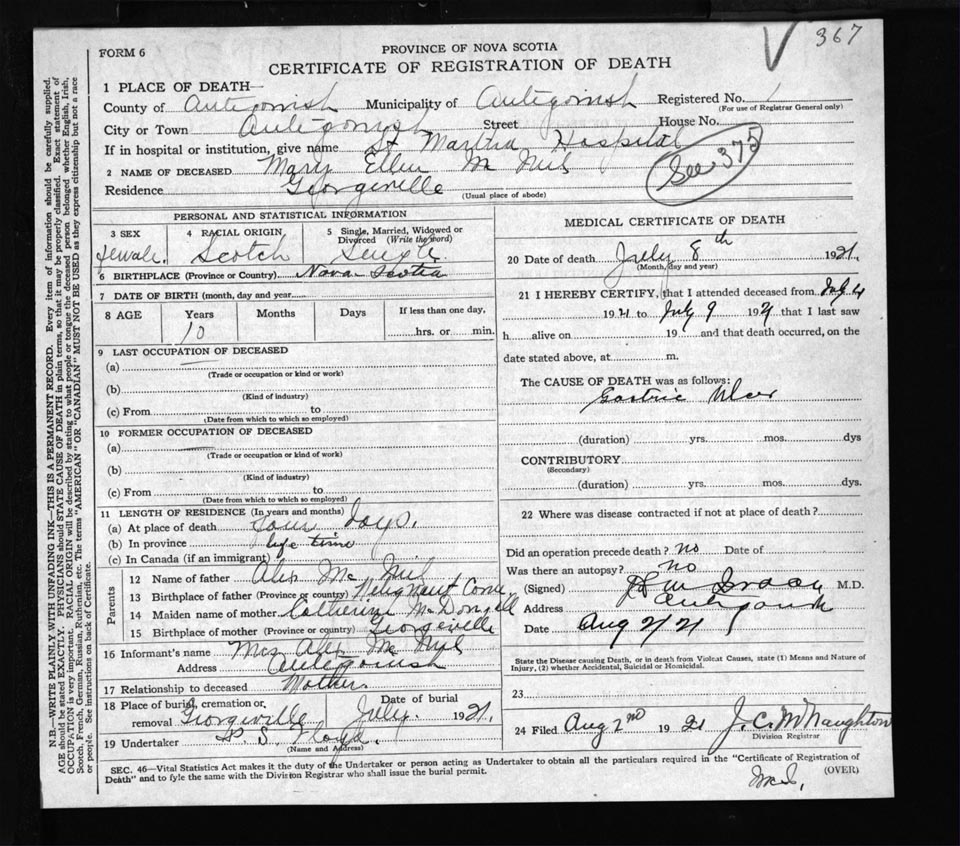 367
FORM 6
PROVINCE OF NOVA SCOTIA
CERTIFICATE OF REGISTRATION OF DEATH
1 PLACE OF DEATH—
County of Antigonish Municipality of Antigonish Registered No.
(For use of Registrar General only)
City or Town Antigonish Street House No.
If in hospital or institution, give name St Martha Hospital
See 375
2 NAME OF DECEASED Mary Ellen Mc Neil
Residence Georgeville (Usual place of abode)
PERSONAL AND STATISTICAL INFORMATION
3 SEX 4 RACIAL ORIGIN 5 Single, Married, Widowed or Divorced (Write the word)
female. Scotch Single.
6 BIRTHPLACE (Province or Country) Nova Scotia
7 DATE OF BIRTH (month, day and year)
8 AGE Years Months Days If less than one day,
10 hrs. or min.
9 LAST OCCUPATION OF DECEASED
(a)
(Trade or occupation or kind or work)
(b)
(Kind of industry)
(c) From to
(Date from which to which so employed)
10 FORMER OCCUPATION OF DECEASED
(a)
(Trade or occupation or kind of work)
(b)
(Kind of industry)
(c) From to
(Date from which to which so employed)
11 LENGTH OF RESIDENCE (In years and months)
(a) At place of death four days.
(b) In province life time
(c) In Canada (if an immigrant)
Parents
12 Name of father Alex Mc Neil
13 Birthplace of father (Province or country) Cove
14 Maiden name of mother Catherine McDougall
15 Birthplace of mother (Province or country) Georgeville
16 Informant's name Mrs Alex Mc Neil
Address Antigonish
17 Relationship to deceased Mother.
18 Place of burial, cremation or removal Georgeville Date of burial July. 1921.
19 Undertaker
(Name and Address)
MEDICAL CERTIFICATE OF DEATH
20 Date of death July 8th 1921.
(Month, day and year)
21 I HEREBY CERTIFY, that I attended deceased from July 4
1921 to July 9 1921 that I last saw
h alive on 19 and that death occurred, on the
date stated above, at m.
The CAUSE OF DEATH was as follows:
Gastric Ulcer
(duration) yrs. mos. dys
CONTRIBUTORY
(Secondary)
(duration) yrs. mos. dys.
22 Where was disease contracted if not at place of death?
Did an operation precede death? no Date of
Was there an autopsy? no
(Signed) M.D.
Address Antigonish
Date Aug 2/21
State the Disease causing Death, or in death from Violent Causes, state (1) Means and Nature of
Injury, (2) whether Accidental, Suicidal or Homicidal.
23
24 Filed Aug 2nd 1921 J. C. McNaughton
Division Registrar
SEC. 46—Vital Statistics Act makes it the duty of the Undertaker or person acting as Undertaker to obtain all the particulars required in the "Certificate of Registration of
Death" and to fyle the same with the Division Registrar who shall issue the burial permit.
(OVER)
N.B.—WRITE PLAINLY WITH UNFADING INK—THIS IS A PERMANENT RECORD. Every item of information should be carefully supplied.
AGE should be stated EXACTLY. PHYSICIANS should STATE CAUSE OF DEATH in plain terms, so that it may be properly classified. Exact statement of
OCCUPATION is very important. RACIAL ORIGIN will be described by stating to what people or tongue the deceased person belonged whether English, Irish,
Scotch, French, German, Russian, Ruthenian, etc. The terms "AMERICAN" OR "CANADIAN" MUST NOT BE USED as they express citizenship but not a race
or people. See instructions on back of Certificate.